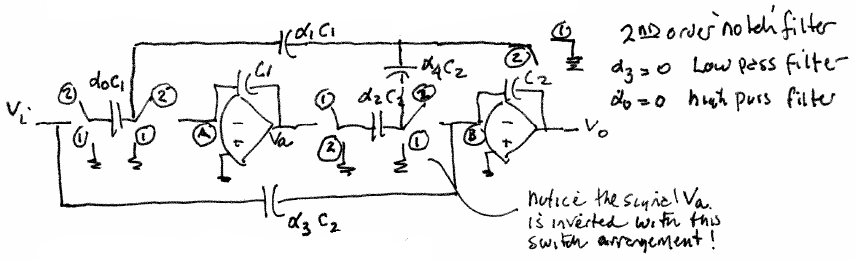 2ND order notch filter
α₃ = 0 Low pass filter
α₀ = 0 high pass filter
①
②
α₁C₁
α₄C₂
C₁
C₂
α₀C₁
α₂C₂
Vi
② ②
① ①
A
- +
Va
① ②
② ①
B
- +
Vo
α₃C₂
notice the signal Va
is inverted with this
switch arrangement!